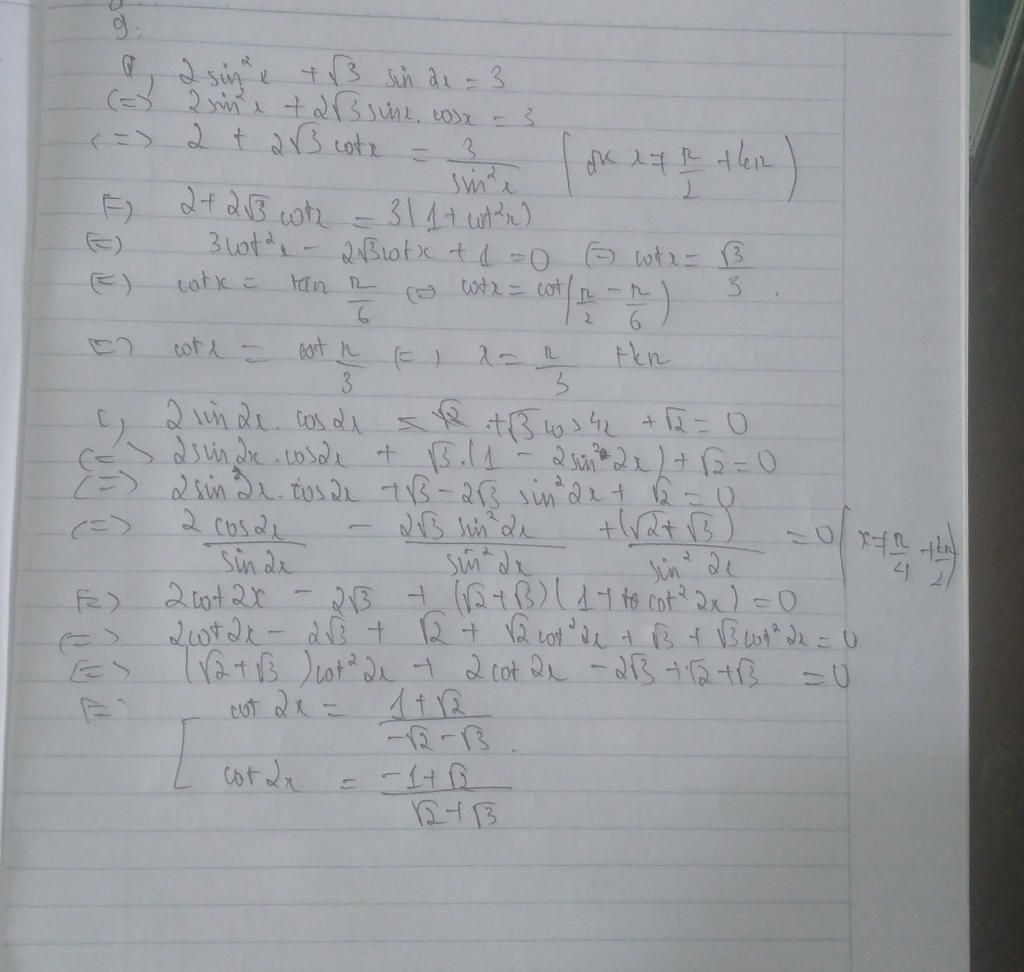 9.
a, 2 sin²x + √3 sin 2x = 3
(=) 2sin²x + 2√3 sinx. cosx = 3
<=> 2 + 2√3 cotx = 3/sin²x (đk x ≠ π/2 + kπ)
(=) 2 + 2√3 cotx = 3(1 + cot²x)
(=) 3cot²x - 2√3cotx + 1 = 0 (=) cotx = √3/3.
(=) cotx = tan π/6 (=) cotx = cot(π/2 - π/6)
(=) cotx = cot π/3 (=) x = π/3 + kπ
c, 2 sin 2x. cos 2x + √3 cos 4x + √2 = 0
<=> 2sin 2x. cos2x + √3.(1 - 2sin²2x) + √2 = 0
<=> 2sin 2x. cos 2x + √3 - 2√3 sin²2x + √2 = 0
(=) 2 cos2x/sin 2x - 2√3 sin²2x/sin²2x + (√2+√3)/sin²2x = 0 (x ≠ π/4 + kπ/2)
(=) 2cot 2x - 2√3 + (√2+√3)(1 + cot²2x) = 0
(=) 2cot 2x - 2√3 + √2 + √2 cot²2x + √3 + √3cot²2x = 0
(=) (√2+√3)cot²2x + 2 cot 2x - 2√3 + √2 + √3 = 0
(=) [ cot 2x = 1+√2/-√2-√3.
cot 2x = -1+√2/√2+√3